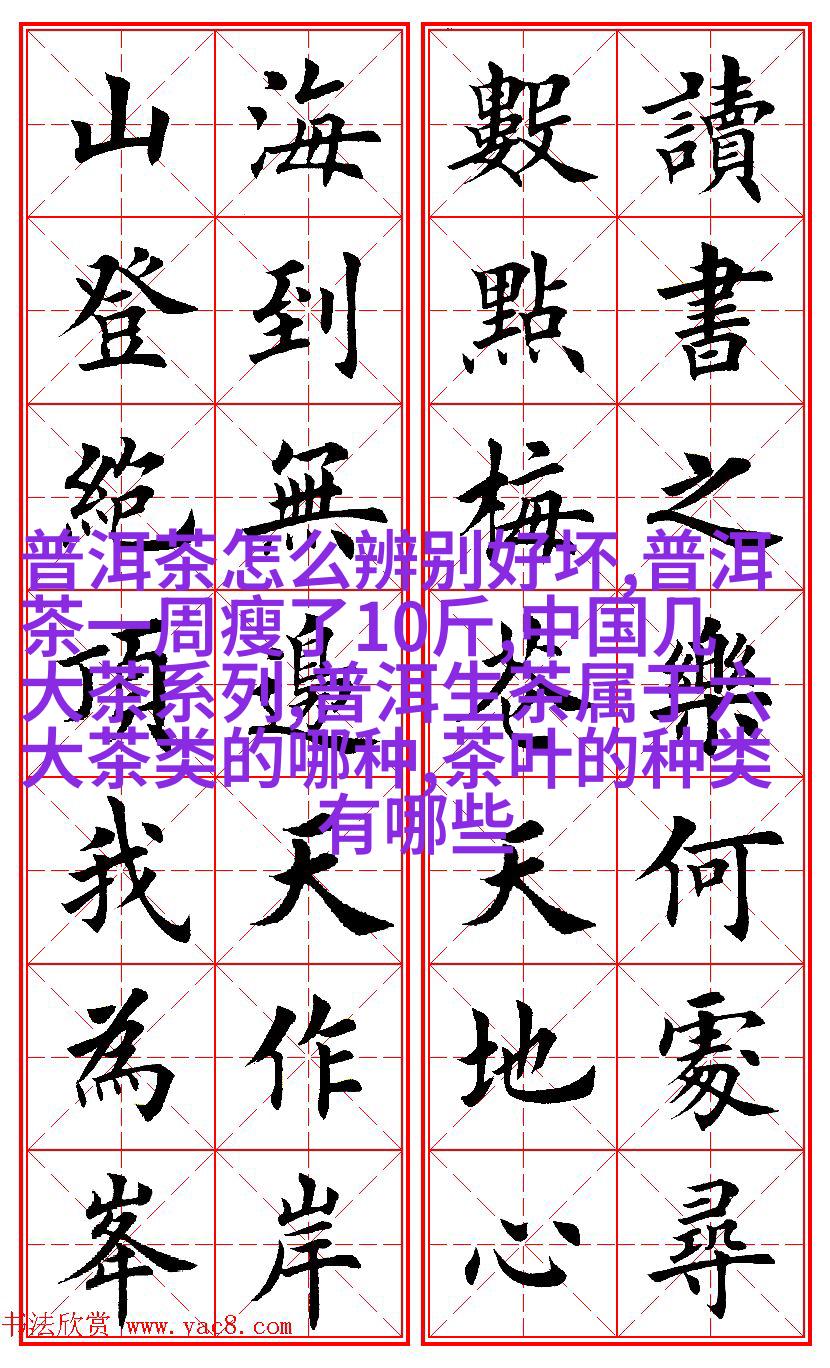 讀書之樂何處尋
數點梅花天地心
海到無邊天作岸
山登絕頂我為峯
普洱茶怎么辨别好坏,普洱
茶一周瘦了10斤,中国几
大茶系列,普洱生茶属于六
大茶类的哪种,茶叶的种类
有哪些
书法欣赏 www.yac8.com